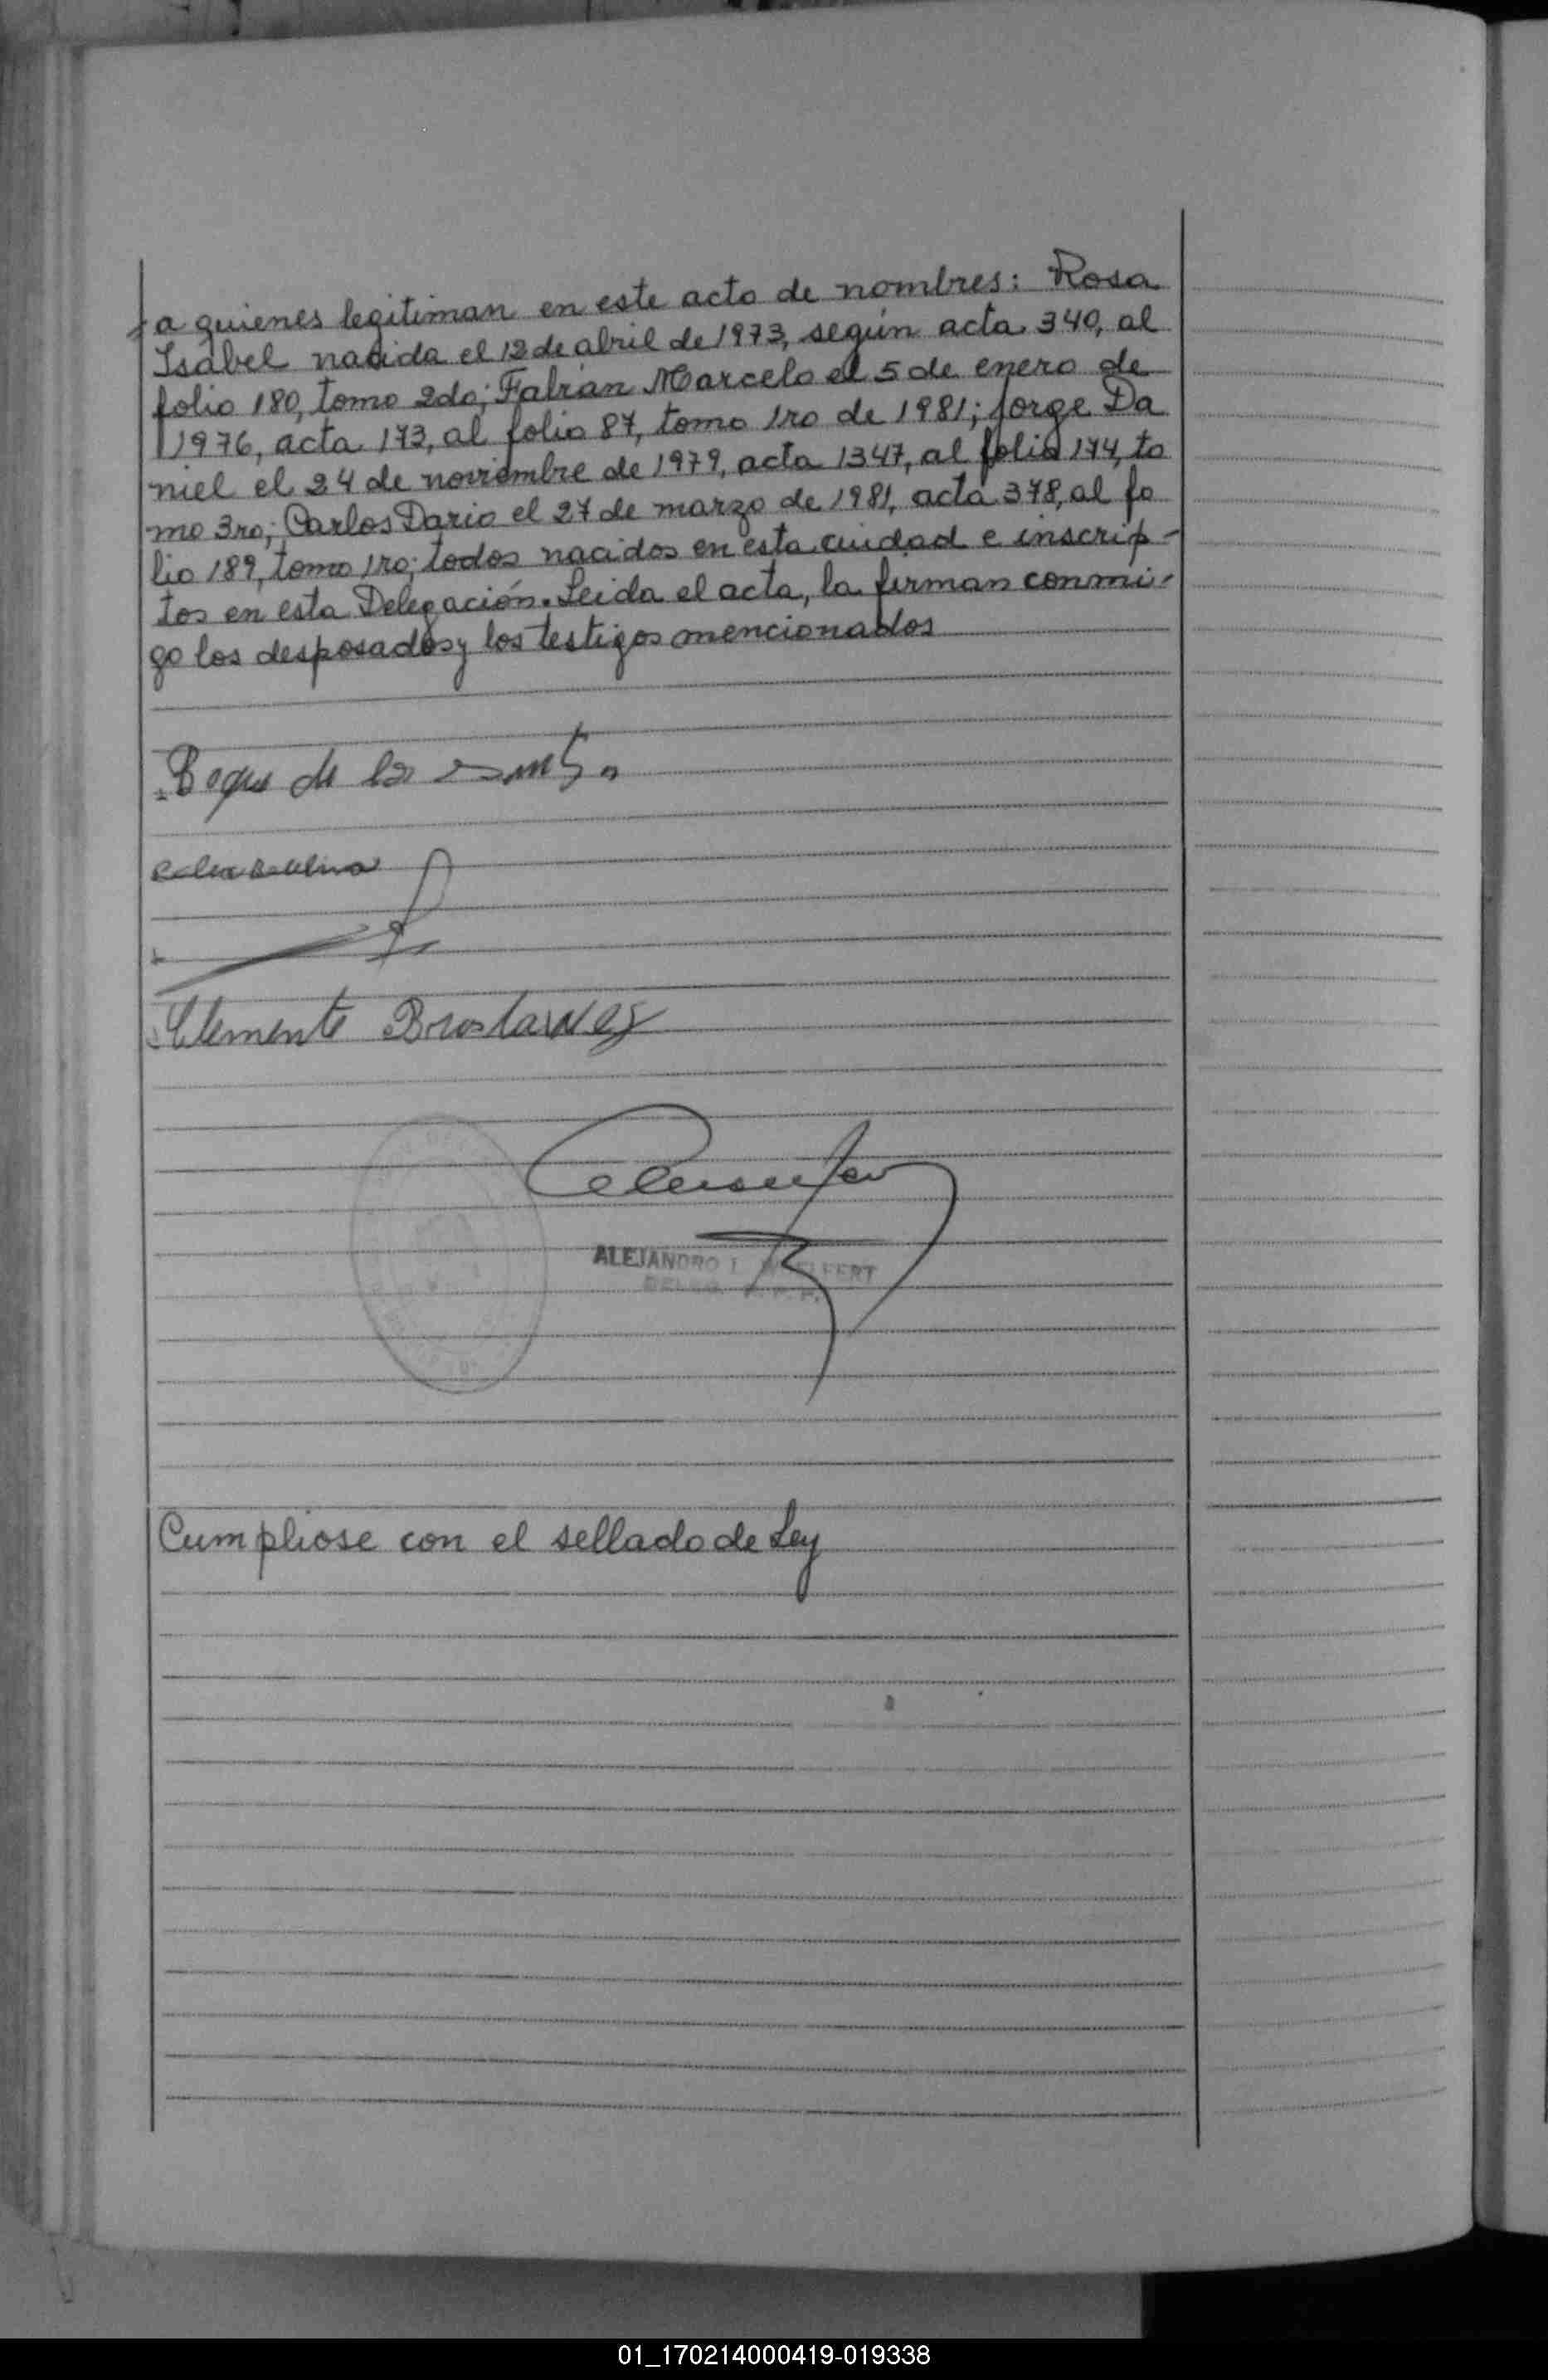 a quienes legitiman en este acto de nombres: Rosa
Isabel nacida el 12 de abril de 1973, según acta 340, al
folio 180, tomo 2do; Fabián Marcelo el 5 de enero de
1976, acta 173, al folio 87, tomo 1ro de 1981; Jorge Da
niel el 24 de noviembre de 1979, acta 1347, al folio 174, to
mo 3ro; Carlos Dario el 27 de marzo de 1981, acta 378, al fo
lio 189, tomo 1ro; todos nacidos en esta ciudad e inscrip-
tos en esta Delegación. Leida el acta, la firman conmi-
go los desposados y los testigos mencionados
Roque de la
Clemente
ALEJANDRO
Cumpliose con el sellado de Ley
01_170214000419-019338